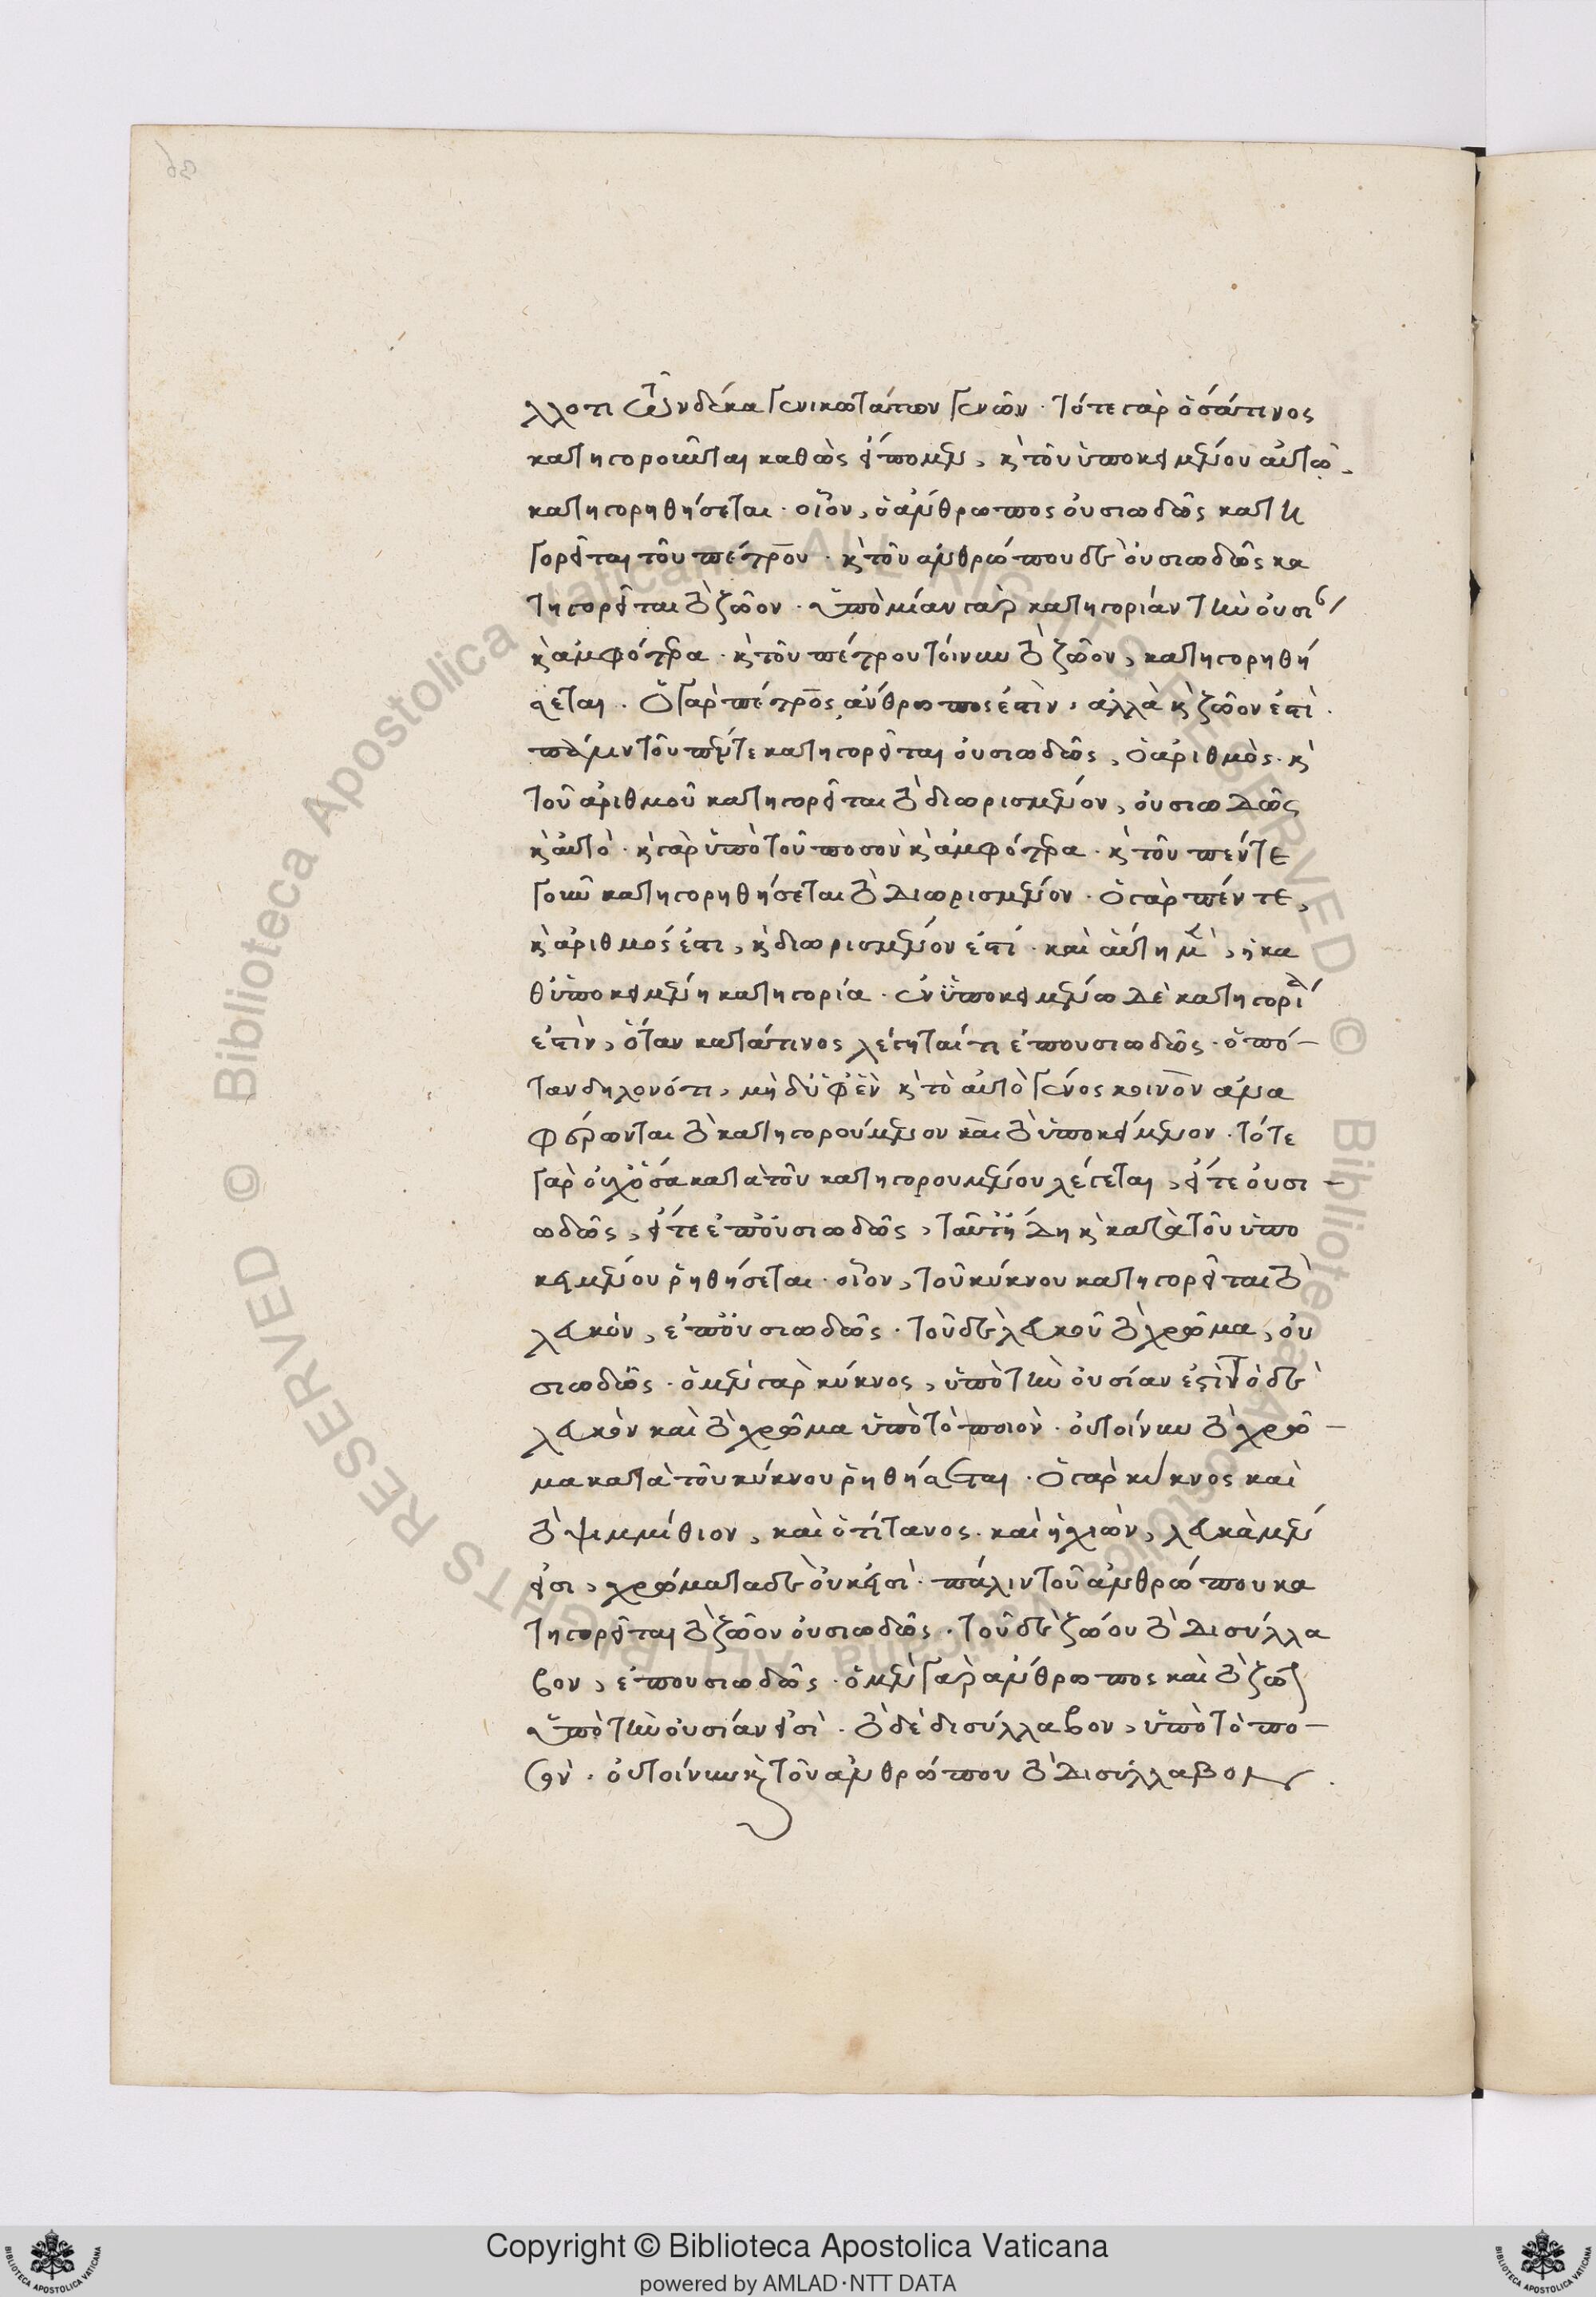 λλοτι τῶν δέκα γενικωτάτων γενῶν · τότε γὰρ ὅσά τινος
κατηγοροῦνται καθὼς εἴπομεν, κ τοῦ ὑποκειμένου αὐτῶ
κατηγορηθήσεται · οἷον, ὁ ἄνθρωπος οὐσιωδῶς κατη
γορεῖται τοῦ πέτρου · κ τοῦ ἀνθρώπου δὲ οὐσιωδῶς κα
τηγορεῖται τὸ ζῶον · ὑπὸ μίαν γὰρ κατηγορίαν τὴν οὐσί
κ ἀμφότερα · κ τοῦ πέτρου τοίνυν τὸ ζῶον, κατηγορηθή
σεται · ὁ γὰρ πέτρος ἄνθρωπος ἐστὶν, ἀλλὰ κ ζῶον ἐστὶ ·
πάλιν τοῦ πέντε κατηγορεῖται οὐσιωδῶς, ὁ ἀριθμὸς · κ
τοῦ ἀριθμοῦ κατηγορεῖται τὸ διωρισμένον, οὐσιωδῶς
κ αὐτὸ · κ γὰρ ὑπὸ τοῦ ποσοῦ κ ἀμφότερα · κ τοῦ πέντε
γοῦν κατηγορηθήσεται τὸ διωρισμένον · ὁ γὰρ πέντε,
κ ἀριθμός ἐστι, κ διωρισμένον ἐστί · καὶ αὕτη μὲν, ἡ κα
θ ὑποκειμένη κατηγορία · ἐν ὑποκειμένω δὲ κατηγορία
ἐστὶν, ὅταν κατά τινος λέγηταί τι ἐπουσιωδῶς · ὁπό
ταν δηλονότι, μὴ δ ὑφ ἓν κ τὸ αὐτὸ γένος κοινὸν ἅμα
φέρωνται τὸ κατηγορούμενον καὶ τὸ ὑποκείμενον · τότε
γὰρ οὐχ ὅσα κατὰ τοῦ κατηγορουμένου λέγεται, εἴτε οὐσι
ωδῶς, εἴτε ἐπουσιωδῶς, ταύτη δη κ κατὰ τοῦ ὑπο
κειμένου ῥηθήσεται · οἷον, τοῦ κύκνου κατηγορεῖται τὸ
λευκὸν, ἐπουσιωδῶς · τοῦ δὲ λευκοῦ τὸ χρῶμα, οὐ
σιωδῶς · ὁ μὲν γὰρ κύκνος, ὑπὸ τὴν οὐσίαν ἐστὶν τὸ δὲ
λευκὸν καὶ τὸ χρῶμα ὑπὸ τὸ ποιὸν · οὐ τοίνυν τὸ χρῶ
μα κατὰ τοῦ κύκνου ῥηθήσεται · ὁ γὰρ κύκνος καὶ
τὸ ψιμμίθιον, καὶ ὁ τίτανος · καὶ ἡ χιὼν, λευκὰ μέν
εἰσι, χρώματα δὲ οὐκ εἰσὶ · πάλιν τοῦ ἀνθρώπου κα
τηγορεῖται τὸ ζῶον οὐσιωδῶς · τοῦ δὲ ζώου τὸ δισύλλα
βον, ἐπουσιωδῶς · ὁ μὲν γὰρ ἄνθρωπος καὶ τὸ ζῶον
ὑπὸ τὴν οὐσίαν εἰσὶ · τὸ δὲ δισύλλαβον, ὑπὸ τὸ πο
σὸν · οὐ τοίνυν κ τοῦ ἀνθρώπου τὸ δισύλλαβον
Copyright © Biblioteca Apostolica Vaticana
powered by AMLAD·NTT DATA